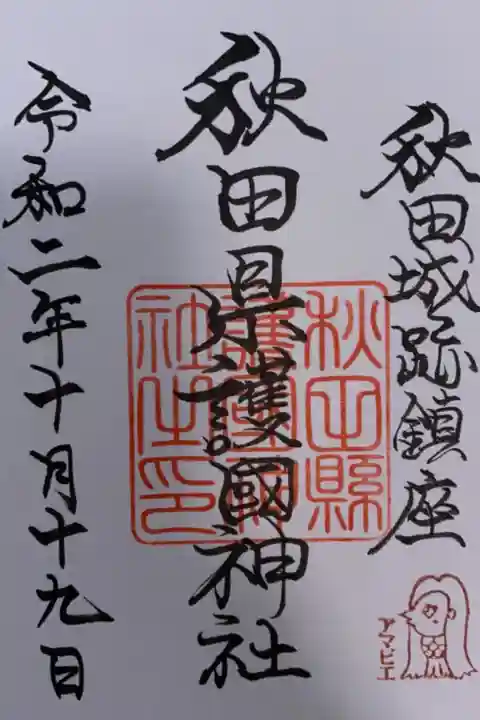 秋田城跡鎮座
秋田県護國神社
令和二年十月十九日
秋田縣
護國神
社之印
アマビエ